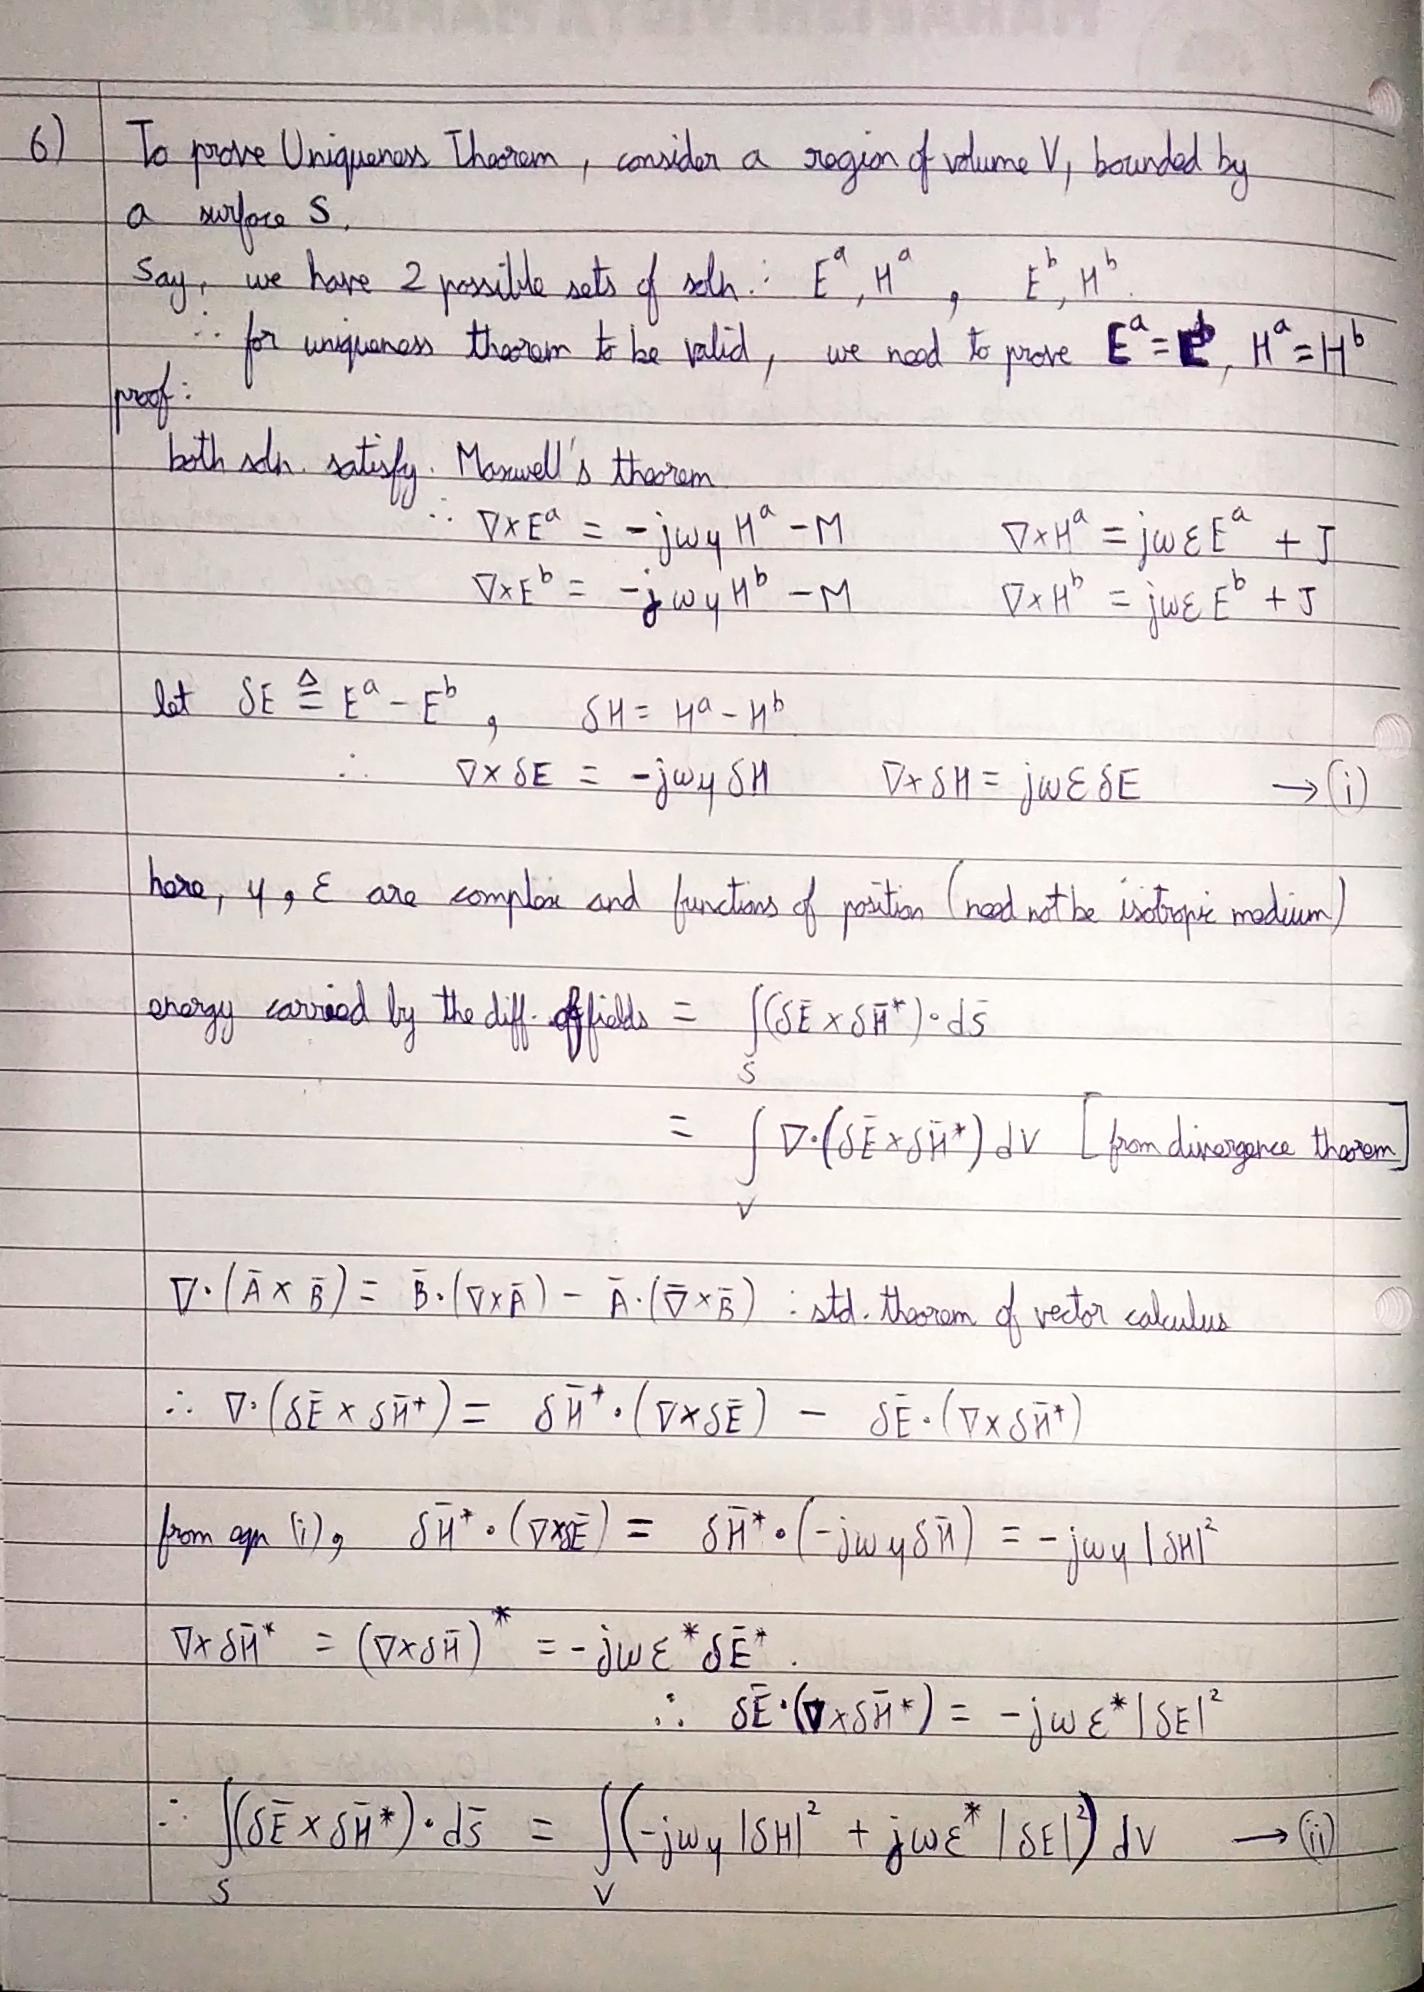 6) To prove Uniqueness Theorem, consider a region of volume V, bounded by
a surface S.
Say, we have 2 possible sets of soln.: E^a, H^a, E^b, H^b.
∴ for uniqueness theorem to be valid, we need to prove E^a = E^b, H^a = H^b
proof:
both soln. satisfy. Maxwell's theorem
∴ ∇×E^a = -jωμ H^a - M ∇×H^a = jωε E^a + J
∇×E^b = -jωμ H^b - M ∇×H^b = jωε E^b + J
let δE ≜ E^a - E^b, δH = H^a - H^b
∴ ∇×δE = -jωμ δH ∇×δH = jωε δE → (i)
here, μ, ε are complex and functions of position (need not be isotropic medium)
energy carried by the diff. of fields = ∫_S (δĒ × δH̄*)·ds̄
= ∫_V ∇·(δĒ × δH̄*) dV [from divergence theorem]
∇·(Ā × B̄) = B̄·(∇×Ā) - Ā·(∇̄×B̄) : std. theorem of vector calculus
∴ ∇·(δĒ × δH̄*) = δH̄*·(∇×δĒ) - δĒ·(∇×δH̄*)
from eqn (i), δH̄*·(∇×δĒ) = δH̄*·(-jωμδH̄) = -jωμ|δH|²
∇×δH̄* = (∇×δH̄)* = -jωε*δĒ*.
∴ δĒ·(∇×δH̄*) = -jωε*|δE|²
∴ ∫_S (δĒ × δH̄*)·ds̄ = ∫_V (-jωμ|δH|² + jωε*|δE|²) dV → (ii)